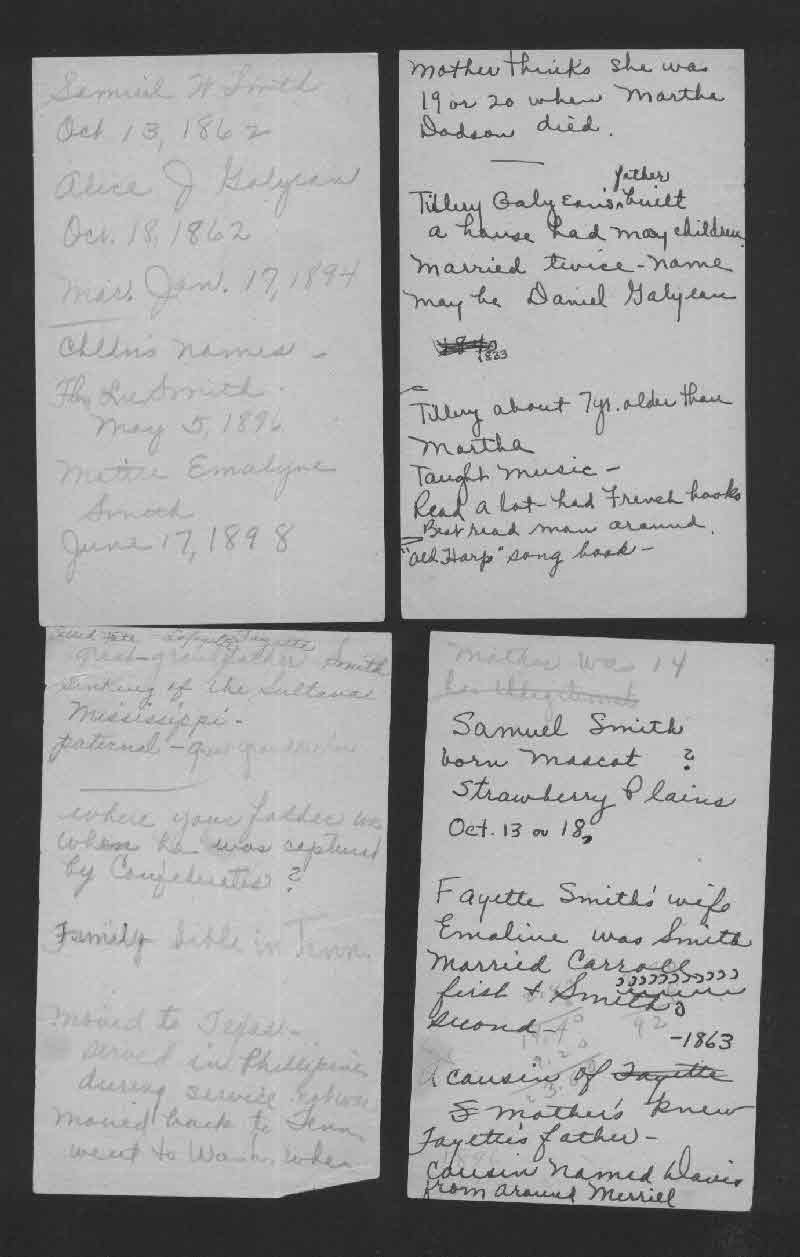 Samuel W Smith
Oct 13, 1862
Alice J Galyean
Oct. 18, 1862
Mar. Jan. 17, 1894
Childns names -
Lee Smith
May 5, 1896
Mattie Emalyne
Smith
June 17, 1898
Mother thinks she was
19 or 20 when Martha
Dodson died.
father
Tillery Galyean's built
a house had many children
Married twice - name
may be Daniel Galyean
1863
Tillery about 7 yr. older than
Martha
Taught music -
Read a lot - had French books
Best read man around.
"Old Harp" song book -
Lafayette
great-grandfather Smith
Sinking of the Sultana
Mississippi -
paternal -
where your father was
when he was captured
by Confederates ?
Family bible in Tenn.
Moved to Texas -
served in Phillipines
during service
Moved back to Tenn.
went to Wash. when
Mother was 14
her
Samuel Smith
born Mascot ?
Strawberry Plains
Oct. 13 or 18,
Fayette Smith's wife
Emaline was Smith
Married Carroll
first & Smith
second -
92
-1863
A cousin of Fayette
Mother's knew
Fayette's father -
Cousin named Davis
from around Merrill